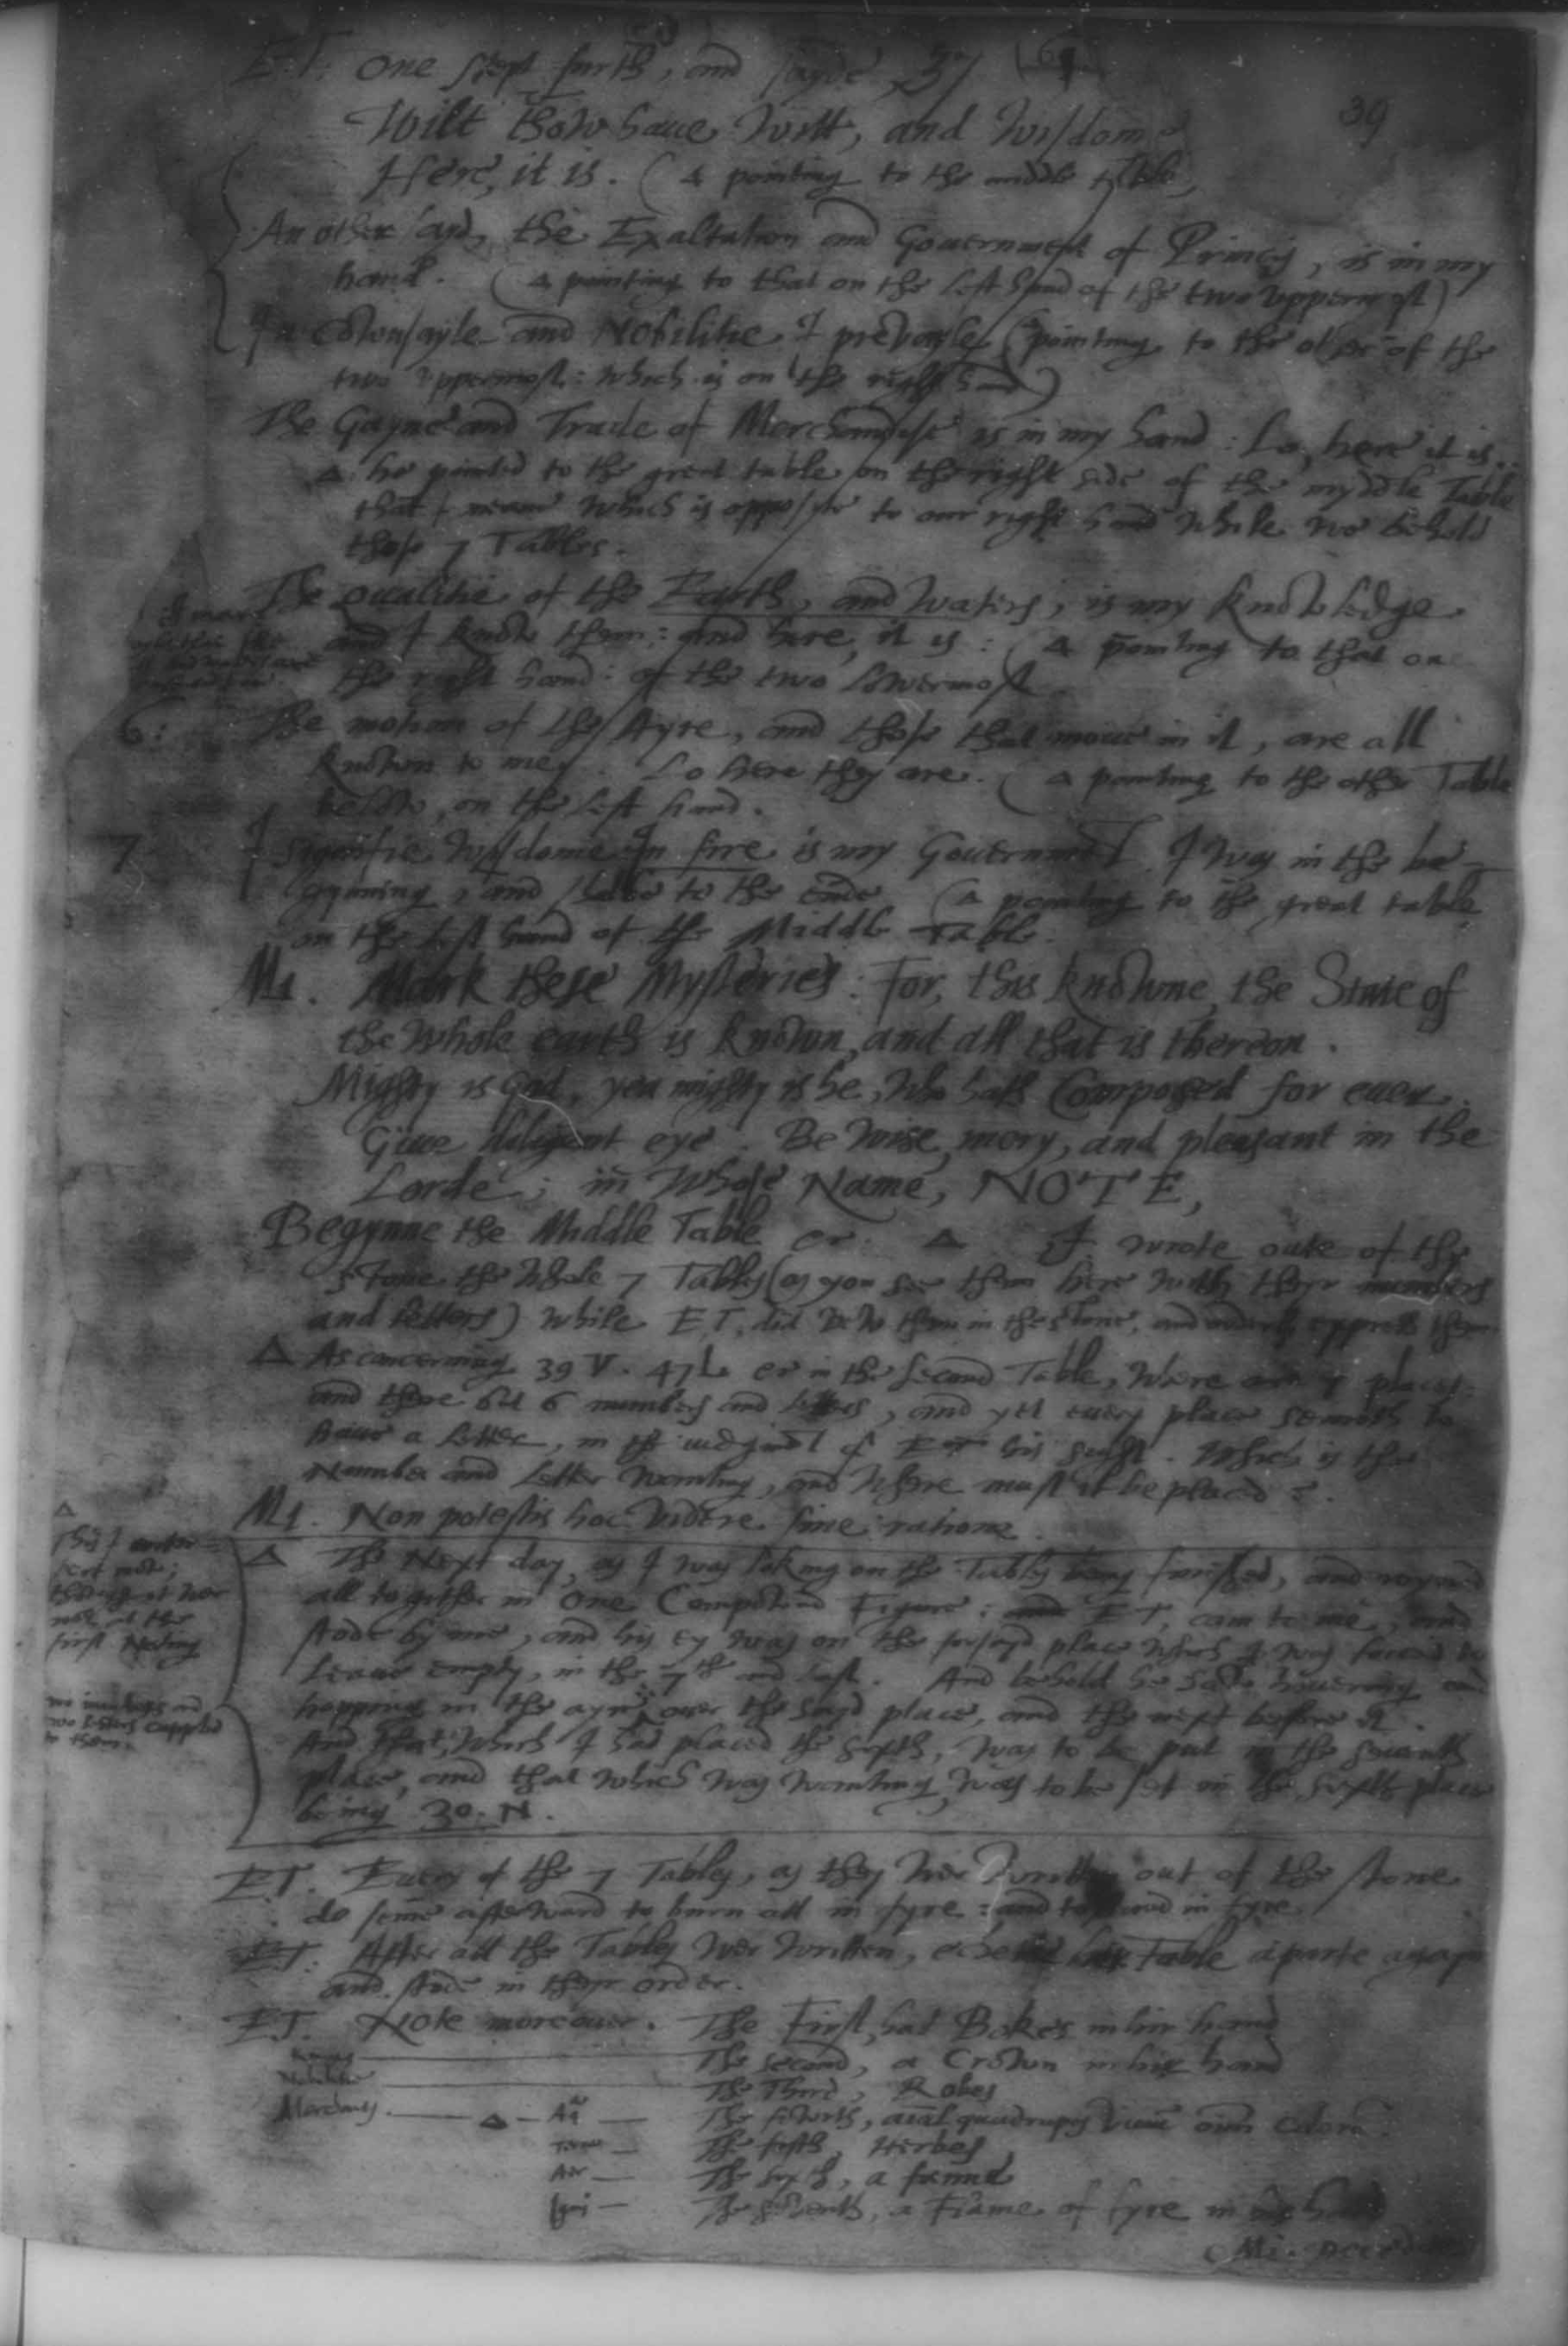 E.T. One stept furth, and sayde,
39
Wilt thow have Witt, and Wisdom
Here, it is. (Δ pointing to the middle Table)
An other sayd, the Exaltation and Government of Princes, is in my
hand. (Δ pointing to that on the left hand of the two uppermost)
In Cownsayle and Nobilitie, I prevayle (pointing to the other of the
two uppermost: which is on the right hand)
The Gayne and Trade of Merchandise is in my hand: Lo, here it is.
Δ he pointed to the great table on the right side of the myddle Table
that I meane which is opposyte to our right hand while we behold
those 7 Tables.
The Qualitie of the Earth, and waters, is my knowledge
and I know them: and here, it is: (Δ pointing to that on
the right hand: of the two lowermost
6: The motion of the Ayre, and those that move in it, are all
known to me. Lo here they are. (Δ pointing to the other Table
below, on the left hand.
7 I signifie wisdome: In fire is my Government. I was in the be-
gynning, and shalbe to the ende (Δ pointing to the great table
on the left hand of the Middle Table.
Mi. Mark these Mysteries: For, this knowne, the State of
the whole earth is known, and all that is thereon.
Mighty is God, yea mighty is he, Who hath Composed for ever.
Give diligent eye. Be wise, mery, and pleasant in the
Lorde; in Whose Name, NOTE,
Begynne the Middle Table er. Δ I wrote oute of the
stone the whole 7 Tables (as you see them here with theyr numbers
and letters) while E.T. did vew them in the stone, and orderly express them
Δ As concerning 39 V. 47 L er in the second Table, where are 7 places:
and there but 6 numbers and letters, and yet every place semeth to
have a letter, in the judgment of E T his sight. Which is the
Number and Letter wanting, and where must it be placed?
Mi. Non potestis hoc videre sine ratione.
Δ The Next day, as I was loking on the Tables being finished, and
all togither in One Compound Figure: E T, cam to me, and
stode by me, and his ey was on the forsayd place which I was forced to
Leave empty, in the 7th and last. And behold he saw hovering and
hopping in the ayre over the sayd place, and the next before it.
And that, which I had placed the sixth, was to be put in the seventh
place, and that which was wanting, was to be set in the sixth place
being 30. N.
Δ
This I
sert note;
though it wer
not at the
first
two numbers and
two letters supplied
to them.
E.T. Every of the 7 Tables, as they wer written out of the stone
do seme afterward to burn all in fyre: and to stand in fyre.
E.T. After all the Tables wer written, eche toke his Table aparte agayn
and stode in theyr order.
E.T. Note moreover. The First, had Bokes in his hand
Kings The second, a Crown in his hand
Nobilitie The Third, Robes
Marchants. Δ Aq The fowrth, aial quadrupes vivum omn colore.
Terre The fifth, Herbes
Aer The sixth, a fanne
Ignis The seventh, a Flame of fyre in his hand
Mi.